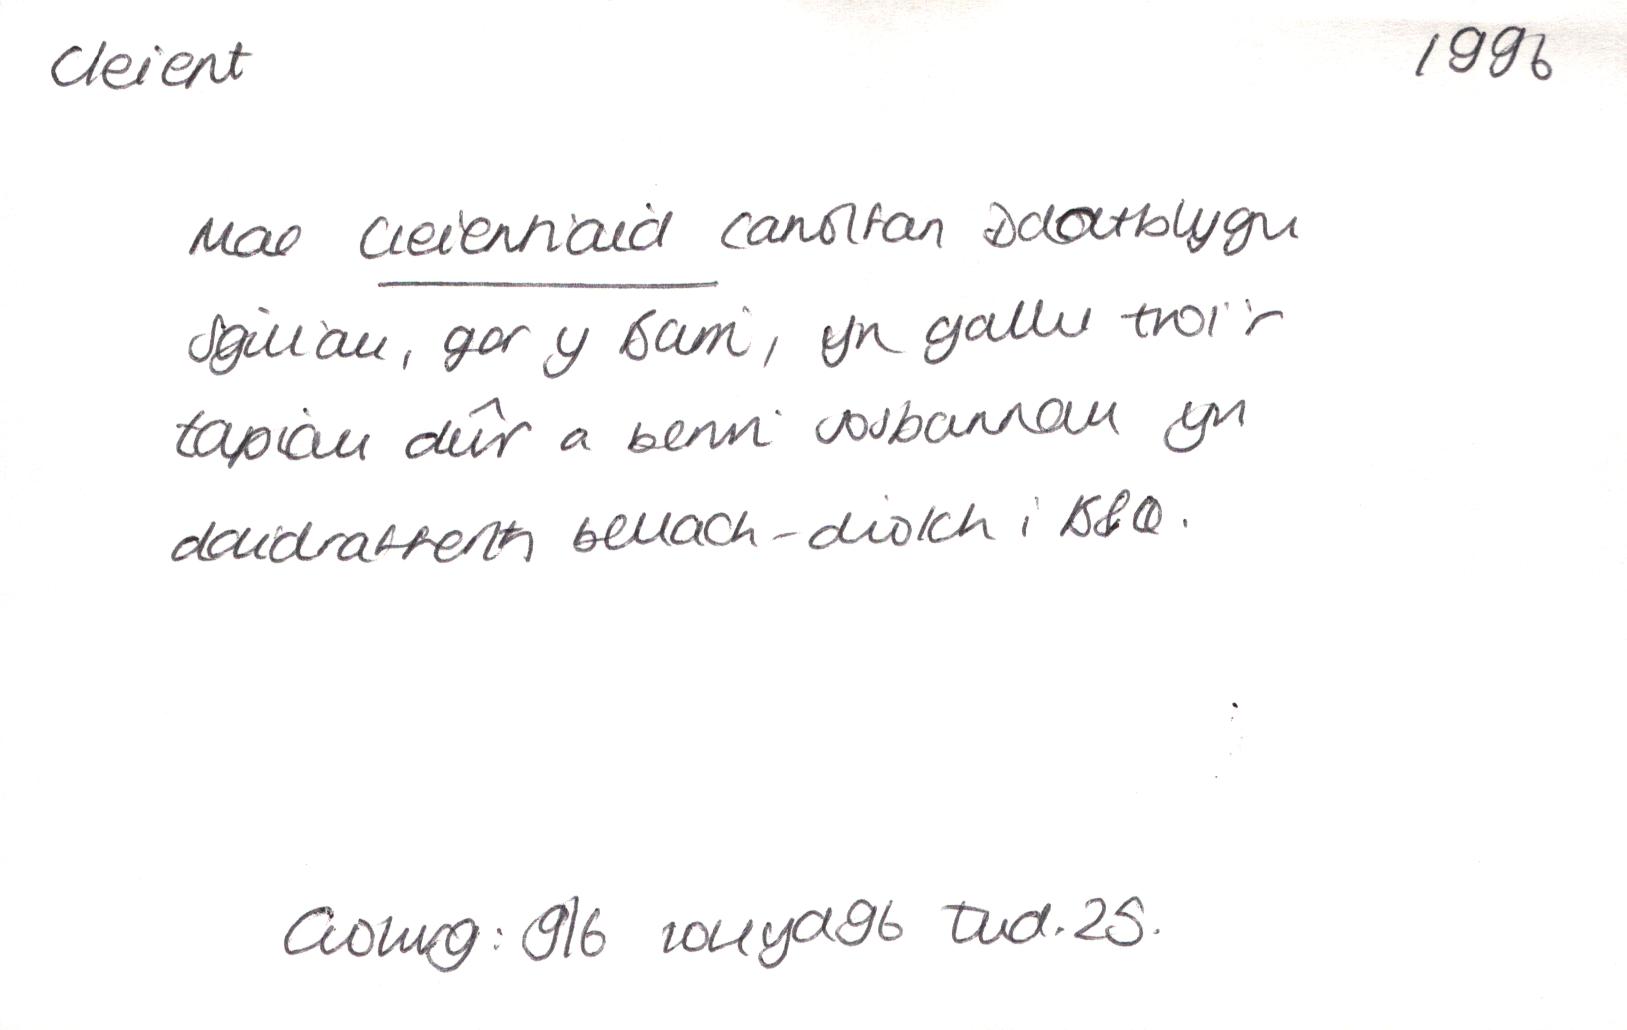 Cleient 1996
Mae cleientiaid Canolfan Ddatblygu
Sgiliau, ger y Barri, yn gallu troi'r
tapiau dŵr a berwi sosbannau yn
ddidrafferth bellach - diolch i B&Q.
Golwg: 916 Ionyd96 tud. 25.